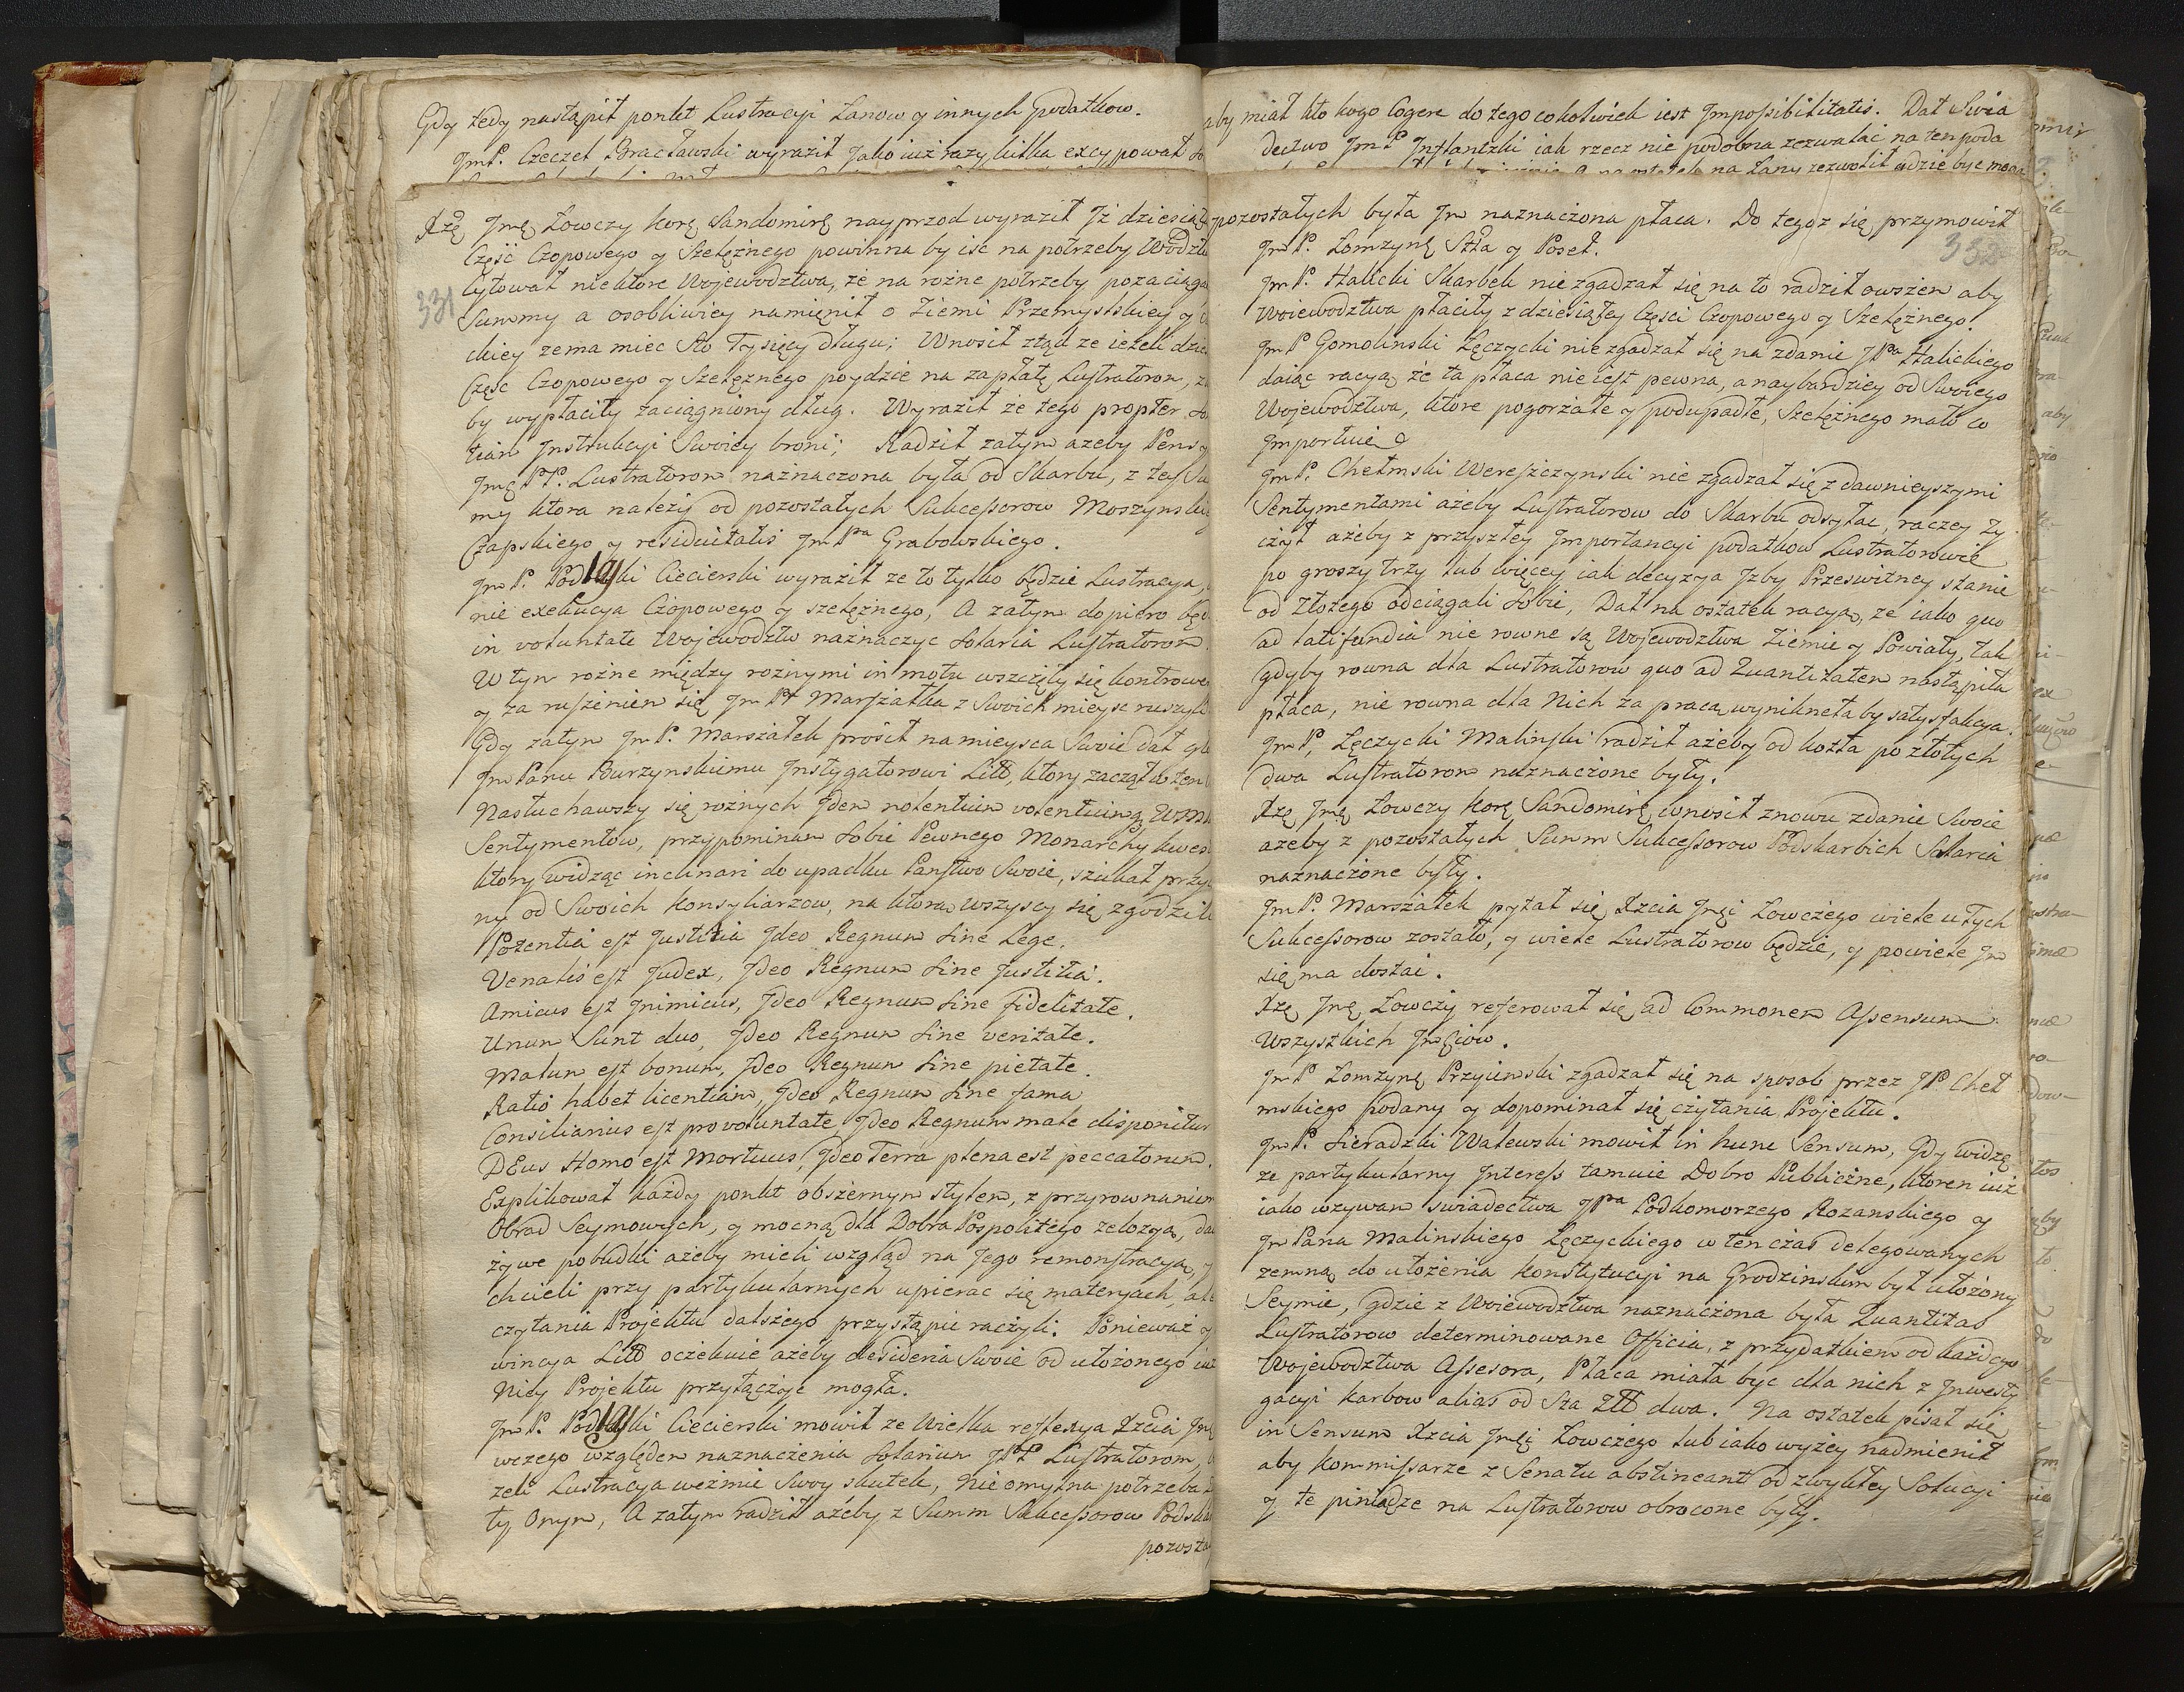 Gdy tedy nastąpił ponkt Lustracyi Łanow y innych Podatkow.
JmP. Czeczel Bracławski wyraził Jako iuż razy kilka excypował
331
Xżę Jmę Łowczy Korę Sandomirę nayprzod wyraził Jż dziesiąta
Część Czopowego y Szelężnego powinna by isc na potrzeby
Cytował niektore Wojewodztwa, że na rożne potrzeby pozaciąga
Summy a osobliwiey namięnił o Ziemi Przemyslskiey y
ckiey zema miec sto Tysięcy długu; Wnosił ztąd ze ieżeli
Częsc Czopowego y Szelężnego poydzie na zapłatę Lustratorom,
by wypłaciły zaciągniony dług. Wyraził że tego propter
tiam Jnstrukcyi Swoiey broni; Radził zatym azeby
Jmę PP. Lustratorom naznaczona była od Skarbu, z
my ktora należy od pozostałych Sukcessorow
Czapskiego y residuitatis JmPna Grabowskiego.
JmP. Podlaski Ciecierski wyraził ze to tylko będzie Lustracya,
nie exekucya Czopowego y szelężnego, A zatym dopiero
in voluntate Wojewodztw naznaczyc Solaria Lustratorom.
W tym rożne między rożnymi in motu wszczęły się
y za ruszeniem się JmPa Marszałka z Swoich mieysc
Gdy zatym JmP. Marszałek prosił na mieysca Swoie dał
Jm Panu Burzynskiemu Jnstygatorowi Litt, ktory zaczął w ten
Nasłuchawszy się rożnych Jdem nolentium volentiumq
Sentymentow, przypominam sobie Pewnego Monarchy
ktory widząc inclinari do upadku Panstwo Swoie, szukał
ny od Swoich Konsyliarzow, na ktora wszyscy się
Potentia est Justitia Jdeo Regnum sine Lege.
Venalis est Judex, Jdeo Regnum sine Justitia.
Amicus est Jnimicus, Jdeo Regnum sine fidelitate.
Unum Sunt duo, Jdeo Regnum sine veritate.
Malum est bonum, Jdeo Regnum sine pietate.
Ratio habet licentiam, Jdeo Regnum sine fama
Consiliarius est pro voluntate, Jdeo Regnum male disponitur
DEus Homo est Mortuus, Jdeo Terra plena est peccatorum.
Explikował każdy ponkt obszernym stylem, z przyrownaniem
Obrad Seymowych, y mocną dla Dobra Pospolitego zelozyą,
żywe pobudki ażeby mieli wzgląd na Jego remonstracyą,
chcieli przy partykularnych upierac się materyach,
czytania Projektu dalszego przystąpic raczyli. Ponieważ
wincya Litt oczekuie ażeby desideria Swoie od ułożonego
Niey Projektu przyłączyc mogła.
JmP. Podlaski Ciecierski mowił ze Wielka reflexya Xzcia
wczego względem naznaczenia Solarium JPP Lustratorom,
zeli Lustracya weźmie Swoy skutek, Nie omylna potrzeba
ty Onym, A zatym radził ażeby z Summ Sukcessorow
aby miał kto kogo cogere do tego cokolwiek iest Jmpossibilitatis. Dał Swia
dectwo JmP Jnflantzki iak rzecz nie podobna zezwalac na ten poda
na Łany zezwolił gdzie byc mogą
pozostałych była Jm naznaczona płaca. Do tegoz się przymowił
JmP. Łomzynę Stta y Poseł.
JmP. Halicki Skarbek nie zgadzał się na to radził owszem aby
Woiewodztwa płaciły z dziesiątey Częsci Czopowego y Szelężnego.
JmP Gomolinski Łęczycki nie zgadzał się na zdanie JPa Halickiego
daiąc racyą że ta płaca nie iest pewna, a naybardziey od Swoiego
Wojewodztwa, ktore pogorzałe y podupadłe, Szelężnego mało co
Jmportuie
JmP. Chełmski Wereszczynski nie zgadzał się z dawnieyszymi
Sentymentami ażeby Lustratorow do Skarbu odsyłac, raczey ży
czył ażeby z przyszłey Jmportancyi podatkow Lustratorowie
po groszy trzy lub więcey iak decyzya Jzby Przeswitney stanie
od Złotego odciągali sobie, Dał na ostatek racyą, ze iako quo
ad latifundia nie rowne są Wojewodztwa Ziemie y Powiaty, tak
gdyby rowna dla Lustratorow quo ad Quantitatem nastąpiła
płaca, nie rowna dla Nich za pracą wyniknełaby satysfakcya.
JmP. Łęczycki Malinski radził ażeby od koszta po złotych
dwa Lustratorom naznaczone były.
Xżę Jmę Łowczy Korę Sandomirę wnosił znowu zdanie Swoie
ażeby z pozostałych Summ Sukcessorow Podskarbich Salaria
naznaczone były.
JmP. Marszałek pytał się Xzcia Jmci Łowczego wiele u tych
Sukcessorow zostało, y wiele Lustratorow będzie, y powiele Jm
się ma dostac.
Xżę Jmę Łowczy referował się ad Commonem Assensum
Wszystkich Jmciow.
JmP Łomzynę Przyiemski zgadzał się na sposob przez JP. Cheł
mskiego podany y dopominał się czytania Projektu.
JmP. Sieradzki Walewski mowił in hunc Sensum, Gdy widzę
ze partykularny Jnteress tamuie Dobro Publiczne, ktoren iuż
iako wzywam swiadectwa JPa Podkomorzego Rozanskiego y
JmPana Malinskiego Łęczyckiego w ten czas delegowanych
zemną do ułożenia Konstytucyi na Grodzinskim był ułożony
Seymie, gdzie z Woiewodztwa naznaczona była Quantitas
Lustratorow determinowane Officia, z przydatkiem od każdego
Wojewodztwa Assesora, Płaca miała byc dla nich z Jnwesty
gacyi karbow alias od Sta Ztt dwa. Na ostatek pisał się
in Sensum Xzcia Jmci Łowczego lub iako wyżey nadmienił
aby Kommissarze z Senatu abstineant od zwykłey Solucyi
y te pieniądze na Lustratorow obrocone były.